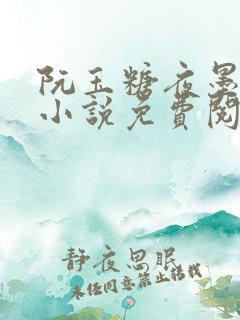 阮玉糖夜墨
小說免費閱
靜夜思眠
未經同意禁止轉載